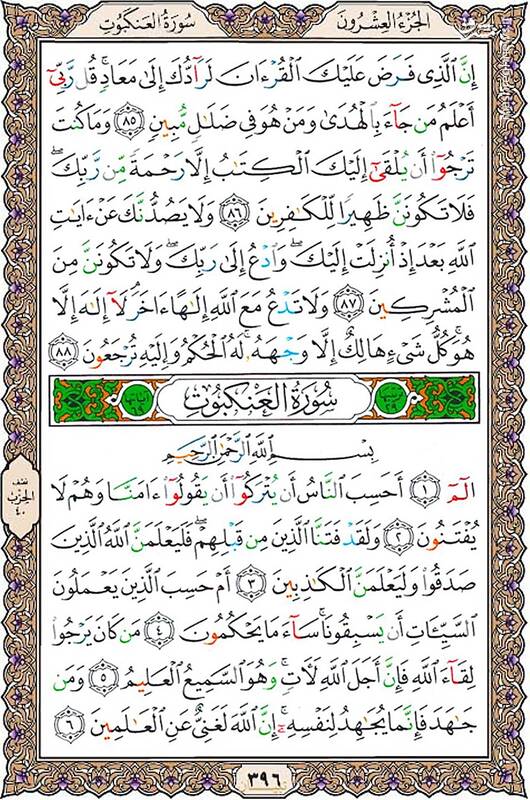 الجُزءُ العِشْرُونَ
سُورَةُ العَنكَبُوتِ
إِنَّ ٱلَّذِى فَرَضَ عَلَيْكَ ٱلْقُرْءَانَ لَرَآدُّكَ إِلَىٰ مَعَادٍۢ ۚ قُل رَّبِّىٓ
أَعْلَمُ مَن جَآءَ بِٱلْهُدَىٰ وَمَنْ هُوَ فِى ضَلَـٰلٍۢ مُّبِينٍۢ ﴿٨٥﴾ وَمَا كُنتَ
تَرْجُوٓا۟ أَن يُلْقَىٰٓ إِلَيْكَ ٱلْكِتَـٰبُ إِلَّا رَحْمَةًۭ مِّن رَّبِّكَ ۖ
فَلَا تَكُونَنَّ ظَهِيرًۭا لِّلْكَـٰفِرِينَ ﴿٨٦﴾ وَلَا يَصُدُّنَّكَ عَنْ ءَايَـٰتِ
ٱللَّهِ بَعْدَ إِذْ أُنزِلَتْ إِلَيْكَ ۖ وَٱدْعُ إِلَىٰ رَبِّكَ ۖ وَلَا تَكُونَنَّ مِنَ
ٱلْمُشْرِكِينَ ﴿٨٧﴾ وَلَا تَدْعُ مَعَ ٱللَّهِ إِلَـٰهًا ءَاخَرَ ۘ لَآ إِلَـٰهَ إِلَّا
هُوَ ۚ كُلُّ شَىْءٍ هَالِكٌ إِلَّا وَجْهَهُۥ ۚ لَهُ ٱلْحُكْمُ وَإِلَيْهِ تُرْجَعُونَ ﴿٨٨﴾
ترتيبها ٢٩
سُورَةُ العَنكَبُوتِ
آياتها ٦٩
بِسْمِ ٱللَّهِ ٱلرَّحْمَـٰنِ ٱلرَّحِيمِ
الٓمٓ ﴿١﴾ أَحَسِبَ ٱلنَّاسُ أَن يُتْرَكُوٓا۟ أَن يَقُولُوٓا۟ ءَامَنَّا وَهُمْ لَا
يُفْتَنُونَ ﴿٢﴾ وَلَقَدْ فَتَنَّا ٱلَّذِينَ مِن قَبْلِهِمْ ۖ فَلَيَعْلَمَنَّ ٱللَّهُ ٱلَّذِينَ
صَدَقُوا۟ وَلَيَعْلَمَنَّ ٱلْكَـٰذِبِينَ ﴿٣﴾ أَمْ حَسِبَ ٱلَّذِينَ يَعْمَلُونَ
ٱلسَّيِّـَٔاتِ أَن يَسْبِقُونَا ۚ سَآءَ مَا يَحْكُمُونَ ﴿٤﴾ مَن كَانَ يَرْجُوا۟
لِقَآءَ ٱللَّهِ فَإِنَّ أَجَلَ ٱللَّهِ لَـَٔاتٍۢ ۚ وَهُوَ ٱلسَّمِيعُ ٱلْعَلِيمُ ﴿٥﴾ وَمَن
جَـٰهَدَ فَإِنَّمَا يُجَـٰهِدُ لِنَفْسِهِۦٓ ۚ إِنَّ ٱللَّهَ لَغَنِىٌّ عَنِ ٱلْعَـٰلَمِينَ ﴿٦﴾
نصف
الحزب
٤٠
٣٩٦